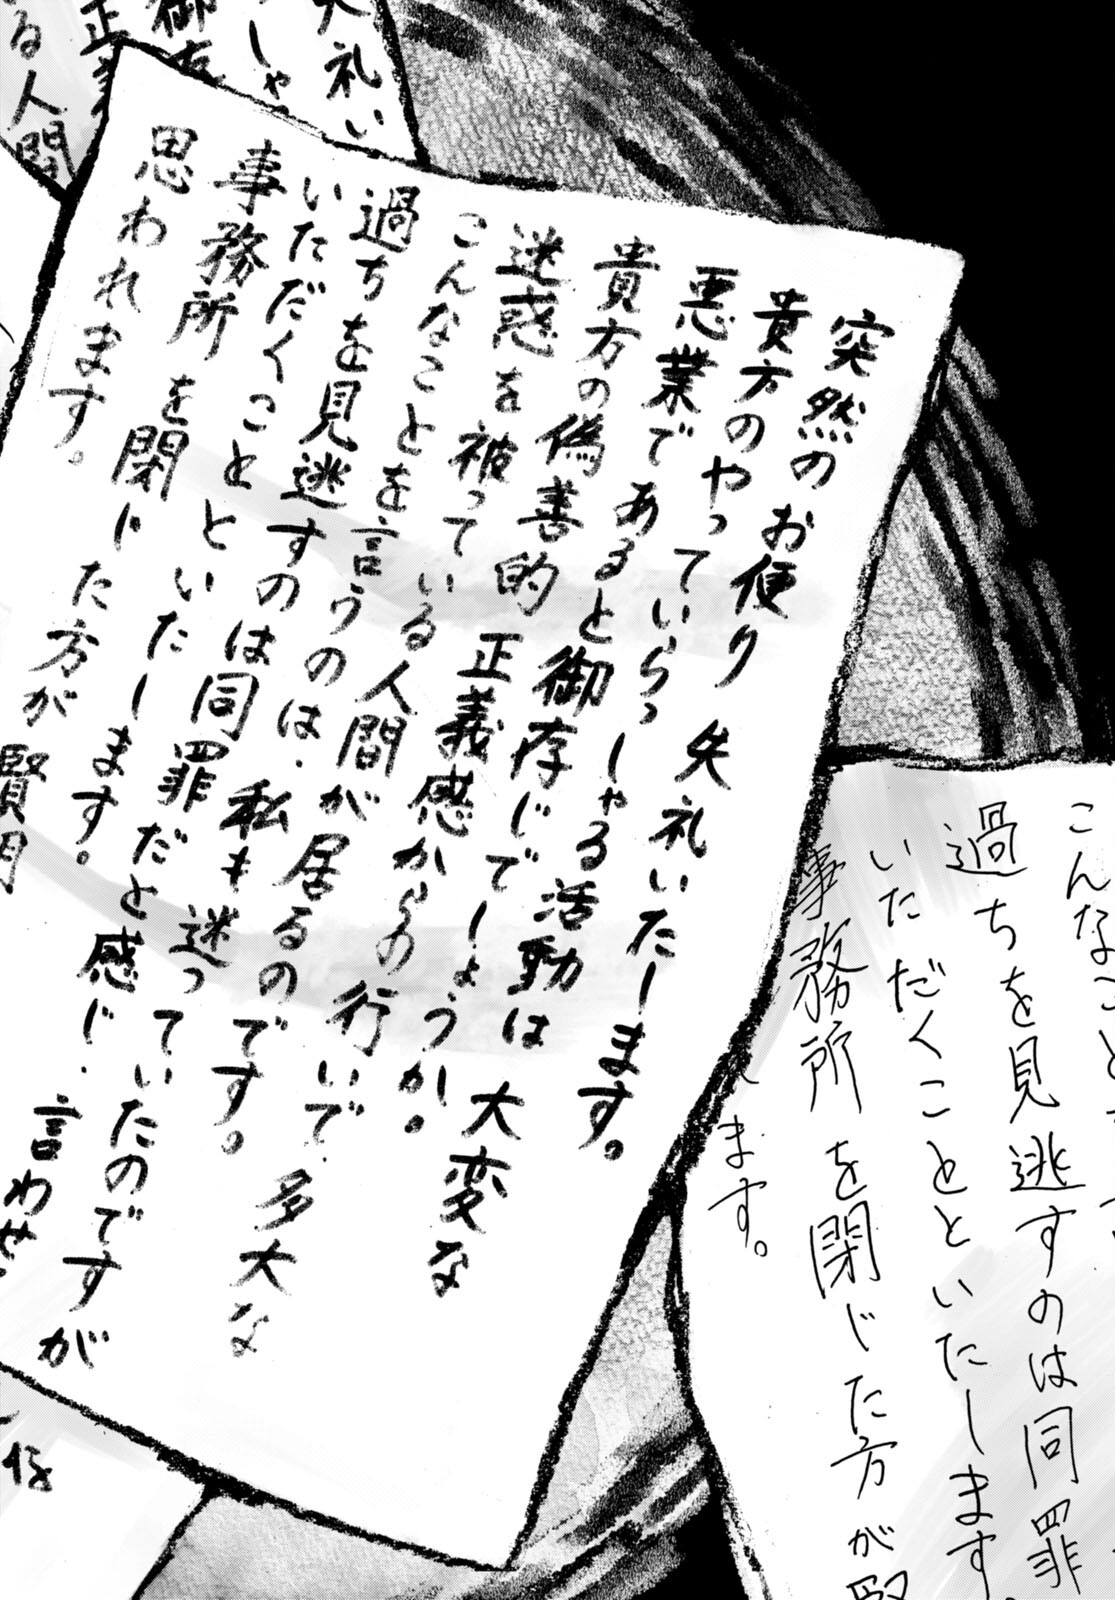 突然のお便り 失礼いたします。
貴方のやっていらっしゃる活動は 大変な
悪業であると御存じでしょうか。
貴方の偽善的 正義感からの行いで、多大な
迷惑を被っている人間が居るのです。
こんなことを言うのは、私も迷っていたのですが
過ちを見逃すのは同罪だと感じ、言わせ
いただくことといたします。
事務所を閉じた方が賢明
思われます。
こんなこと
過ちを見逃すのは同罪
いただくことといたします。
事務所を閉じた方が
ます。
礼い
しゃ
御存
正義
る人間